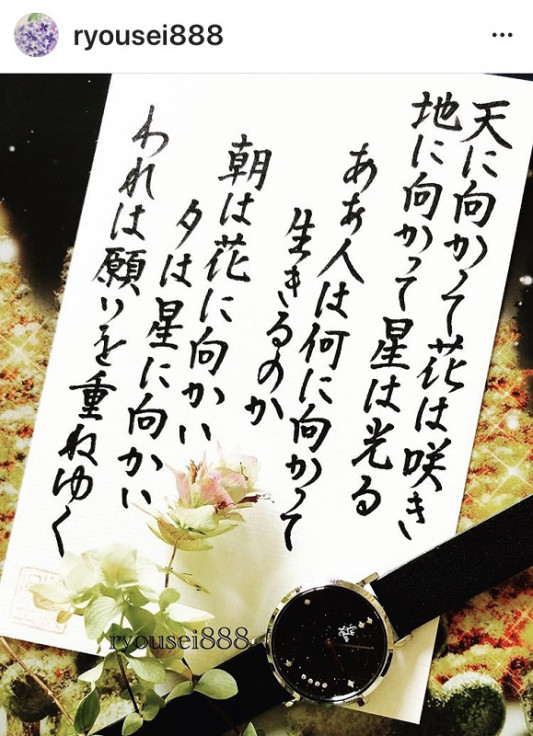 ryousei888
天に向かって花は咲き
地に向かって星は光る
ああ人は何に向かって
生きるのか
朝は花に向かい
夕は星に向かい
われは願いを重ねゆく
ryousei888